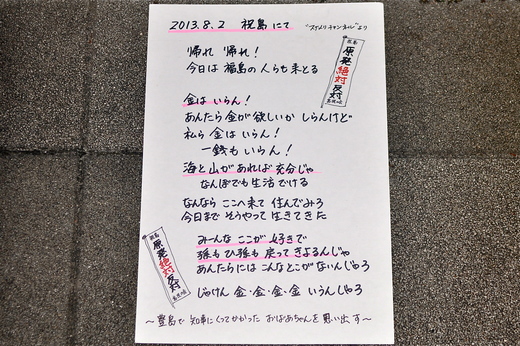 2013.8.2 祝島にて
"スナメリチャンネル"より
帰れ 帰れ！
今日は 福島の人らも来とる
原発絶対反対
金は いらん！
あんたら金が欲しいか しらんけど
私ら 金は いらん！
一銭も いらん！
海と山があれば 充分じゃ
なんぼでも生活でける
なんなら ここへ来て 住んでみろ
今日まで そうやって 生きてきた
みーんな ここが 好きで
孫も ひ孫も 戻って きよるんじゃ
あんたらには こんなとこが ないんじゃろ
じゃけん 金・金・金・金 いうんじゃろ
原発絶対反対
〜豊島で 知事にくってかかった おばあちゃんを 思い出す〜